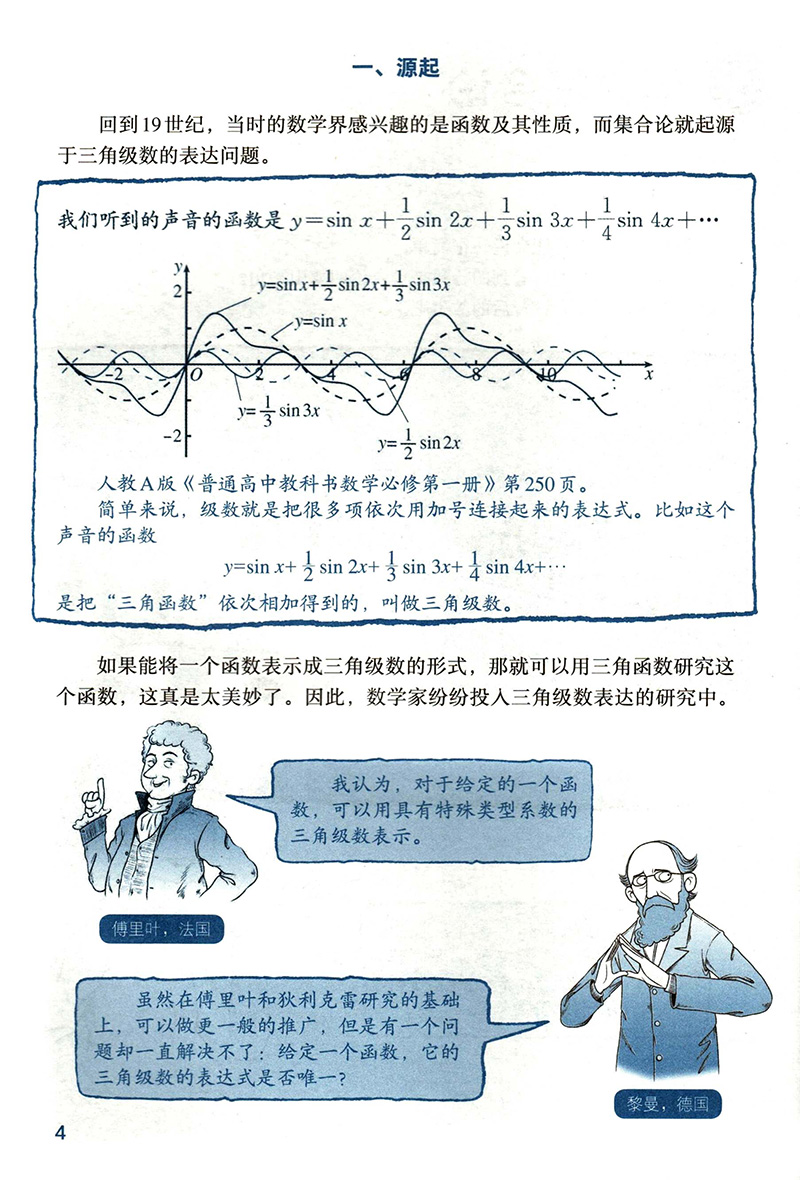 一、源起
回到19世纪，当时的数学界感兴趣的是函数及其性质，而集合论就起源
于三角级数的表达问题。
我们听到的声音的函数是 y=sin x+1/2 sin 2x+1/3 sin 3x+1/4 sin 4x+…
y
2
y=sin x+1/2 sin 2x+1/3 sin 3x
y=sin x
-2
O
2
4
6
8
10
x
y=1/3 sin 3x
-2
y=1/2 sin 2x
人教A版《普通高中教科书数学必修第一册》第250页。
简单来说，级数就是把很多项依次用加号连接起来的表达式。比如这个
声音的函数
y=sin x+1/2 sin 2x+1/3 sin 3x+1/4 sin 4x+…
是把“三角函数”依次相加得到的，叫做三角级数。
如果能将一个函数表示成三角级数的形式，那就可以用三角函数研究这
个函数，这真是太美妙了。因此，数学家纷纷投入三角级数表达的研究中。
我认为，对于给定的一个函
数，可以用具有特殊类型系数的
三角级数表示。
傅里叶，法国
虽然在傅里叶和狄利克雷研究的基础
上，可以做更一般的推广，但是有一个问
题却一直解决不了：给定一个函数，它的
三角级数的表达式是否唯一？
黎曼，德国
4